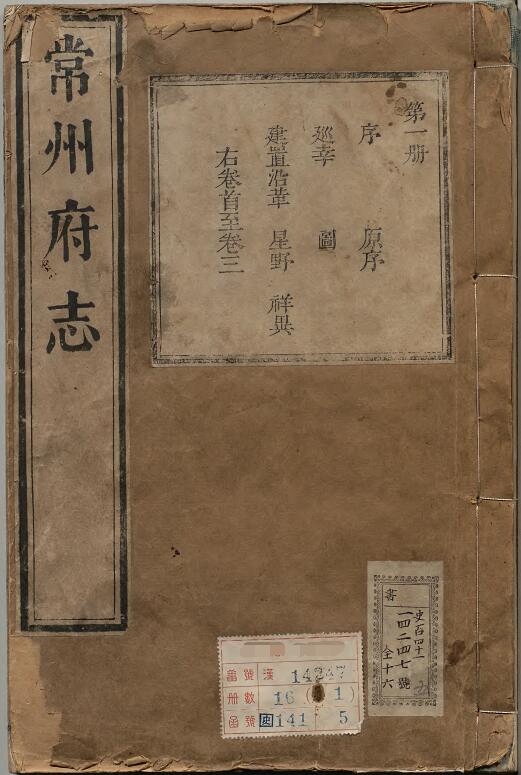 常州府志
第一册
序 原序
巡幸 圖
建置沿革 星野 祥異
右卷首至卷三
書
史百四十一
一四二四七號
全十六
番號 漢 14247
册數 16 ( 1)
函號 史141 5